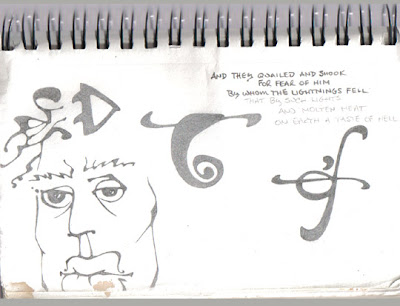 AND THEY QUAILED AND SHOOK
FOR FEAR OF HIM
By WHOM THE LIGHTNINGS FELL
THAT By SUCH LIGHTS
AND MOLTEN HEAT
ON EARTH A TASTE OF HELL